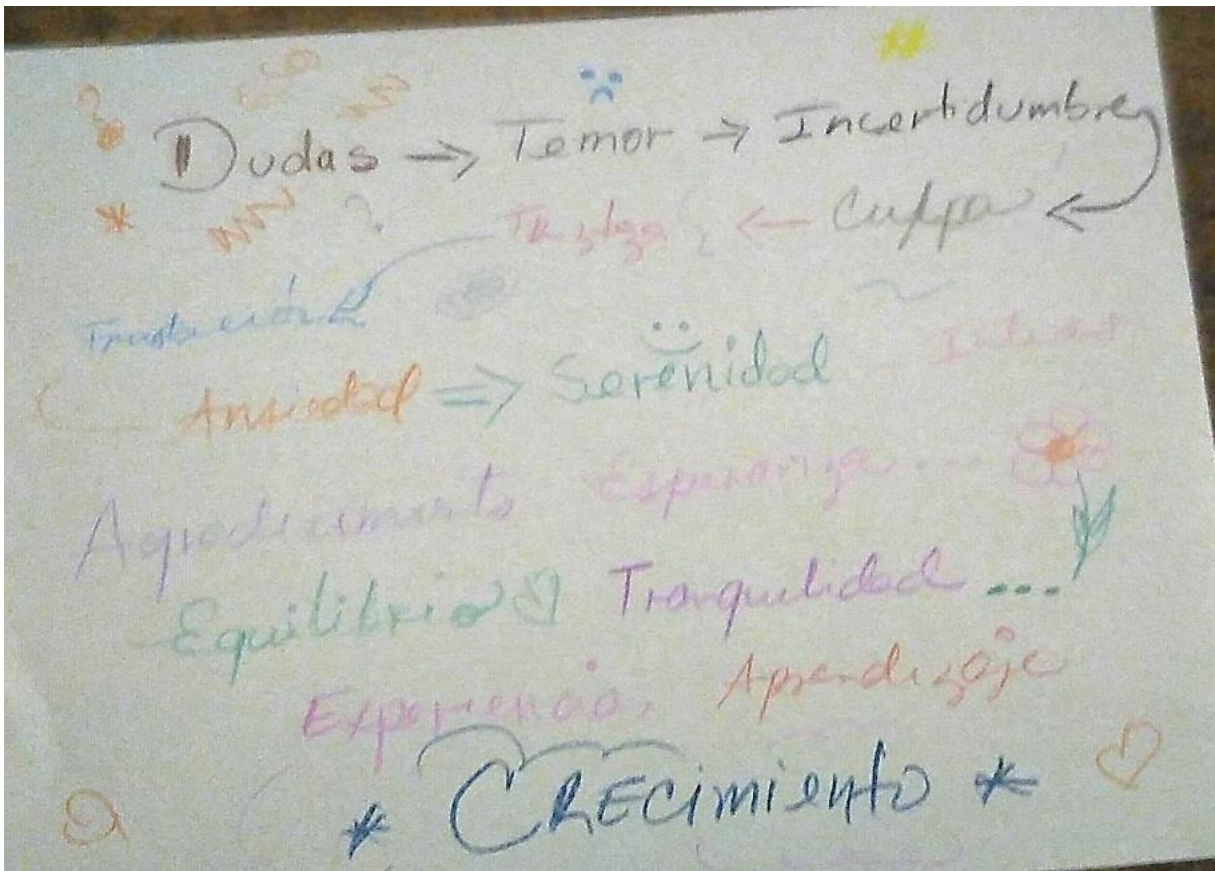 Dudas → Temor → Incertidumbre
Culpa ← Tristeza
Frustración
Ansiedad ⇒ Serenidad
Agradecimiento Esperanza...
Equilibrio Tranquilidad...
Experiencia, Aprendizaje
* CRECimiento *